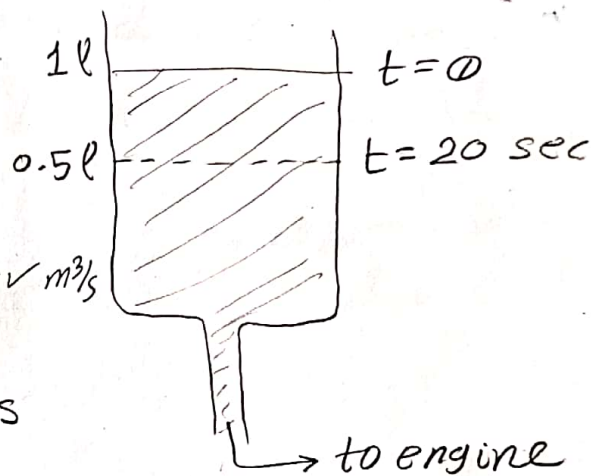 1l t=0
0.5l t=20 sec
✓ m³/s
s
to engine